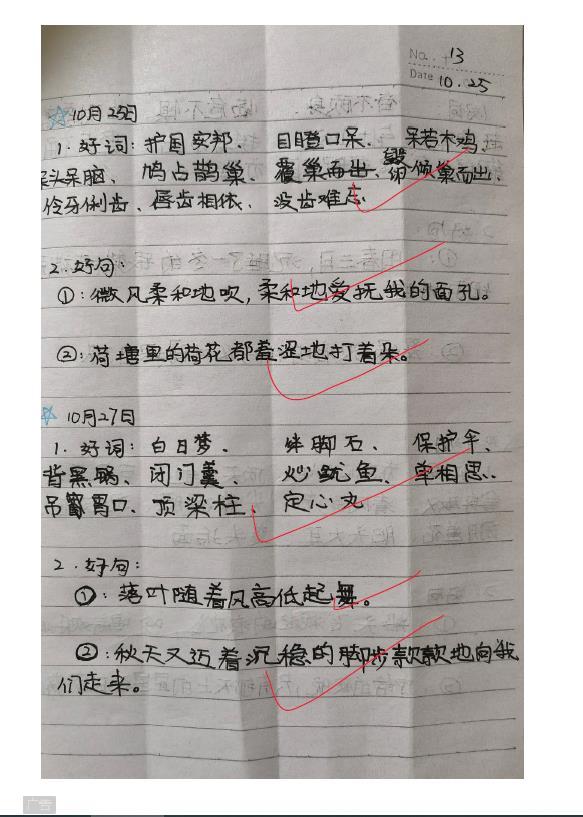 No. 13
Date 10.25
☆10月25日
1.好词：护国安邦、目瞪口呆、呆若木鸡、
呆头呆脑、鸠占鹊巢、覆巢而出、毁卵倾巢而出、
伶牙俐齿、唇齿相依、没齿难忘
2.好句：
①：微风柔和地吹，柔和地爱抚我的面孔。
②：荷塘里的荷花都羞涩地打着朵。
☆10月27日
1.好词：白日梦、绊脚石、保护伞、
背黑锅、闭门羹、炒鱿鱼、单相思、
吊胃口、顶梁柱、定心丸
2.好句：
①：落叶随着风高低起舞。
②：秋天又迈着沉稳的脚步款款地向我
们走来。
广告